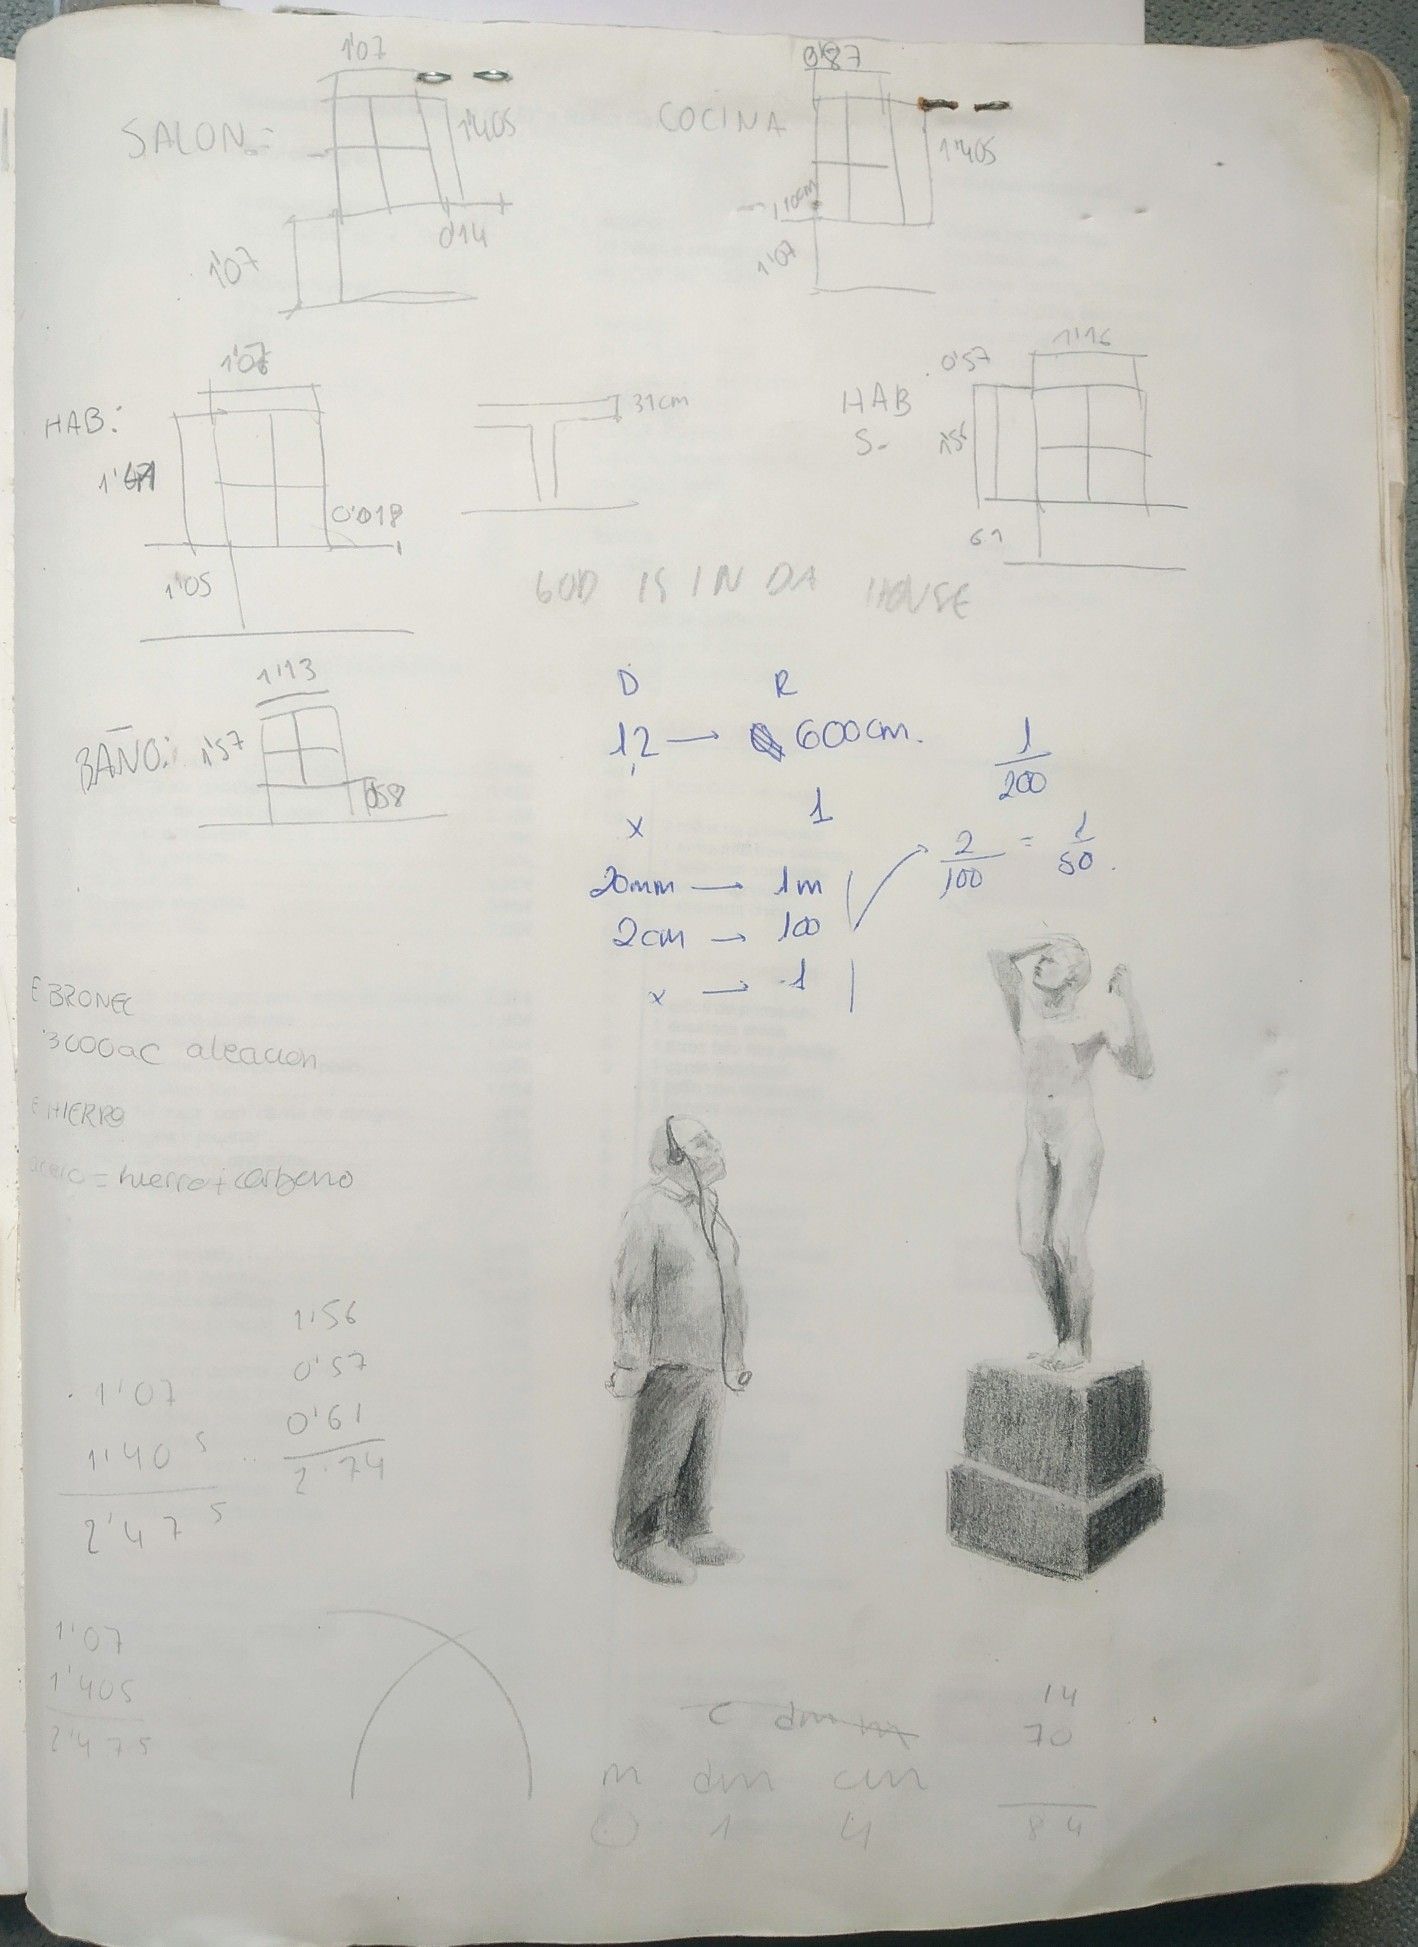 1'07
SALON=
1'405
0'14
1'07
0'87
COCINA
1'405
10cm
1'07
1'07
HAB:
0'018
1'05
31cm
1'16
0'57
HAB
S-
1'56
61
GOD IS IN DA HOUSE
1'13
BAÑO:
1'57
D R
12 → 600cm.
x 1
20mm → 1m
2cm → 100
x → 1
1/200
2/100 = 1/50.
E BRONEC
3000aC aleacion
E HIERRO
acero = hierro + carbono
1'56
0'57
0'61
2'74
1'07
1'40 5
2'47 5
1'07
1'405
2'475
c dm m
m dm cm
0 1 4
14
70
84